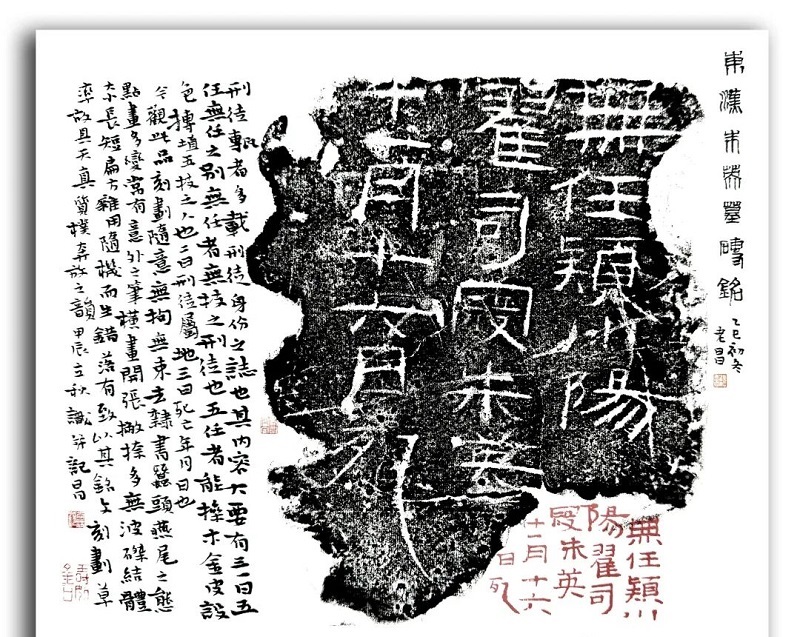 東漢朱英墓磚銘
乙巳初冬
老昌
無任潁川陽
翟司寇朱英
十二月十六日死
無任潁川
陽翟司
寇朱英
十二月十六
日死
刑徒甎者多載刑徒身份之誌也其内容大要有三一曰五
任無任之別無任者無技之刑徒也五任者能操木金皮設
色摶埴五技之人也二曰刑徒屬地三曰死亡年月日也
今觀此品刻劃隨意無拘無束去隸書蠶頭燕尾之態
點畫多變常有意外之筆橫畫開張撇捺多無波磔結體
亦長短扁方雜用隨機而生錯落有致以其銘文刻劃草
率故具天真質樸奔放之韻甲辰立秋識并記昌